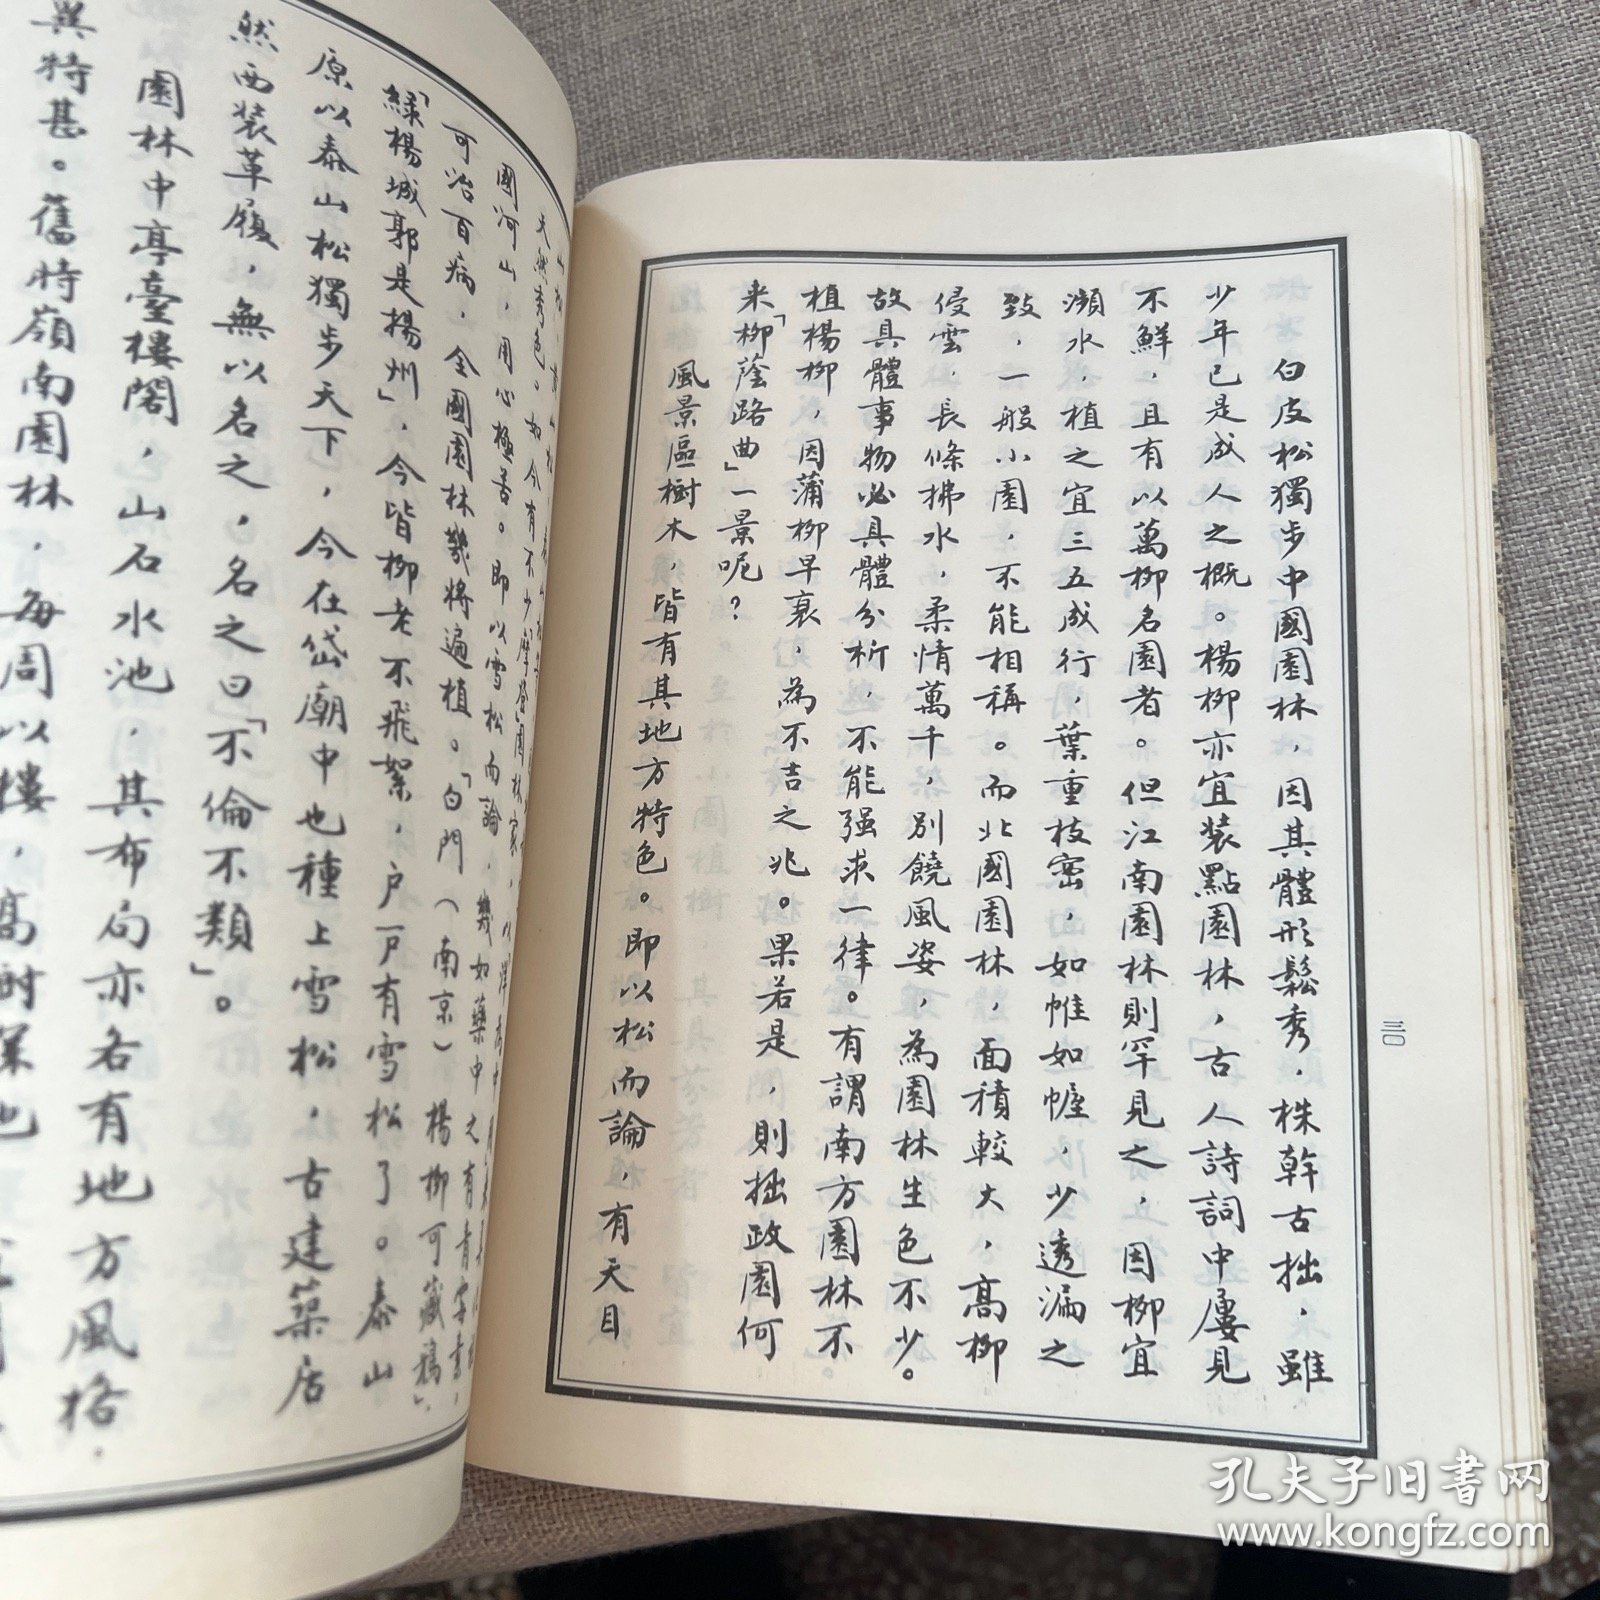 白皮松獨步中國園林，因其體形鬆秀，株幹古拙，雖
少年已是成人之概。楊柳亦宜裝點園林，古人詩詞中屢見
不鮮，且有以萬柳名園者。但江南園林則罕見之，因柳宜
瀕水，植之宜三五成行，葉重枝密，如帷如幄，少透漏之
致，一般小園，不能相稱。而北國園林，面積較大，高柳
侵雲，長條拂水，柔情萬千，別饒風姿，為園林生色不少。
故具體事物必具體分析，不能强求一律。有謂南方園林不
植楊柳，因蒲柳早衰，為不吉之兆。果若是，則拙政園何
來「柳蔭路曲」一景呢？
風景區樹木，皆有其地方特色。即以松而論，有天目
三〇
天然秀色。如今有不少「摩登」園林家，以
國河山，用心極善。即以雪松而論，幾如藥中之有青
可治百病，全國園林幾將遍植。「白門（南京）楊柳可藏鴉」，
「緑楊城郭是揚州」，今皆柳老不飛絮，户户有雪松了。泰山
原以泰山松獨步天下，今在岱廟中也種上雪松，古建築居
然西裝革履，無以名之，名之曰「不倫不類」。
園林中亭臺樓閣，山石水池，其布局亦各有地方風格，
異特甚。舊時嶺南園林，每周以樓，高
孔夫子旧书网
www.kongfz.com